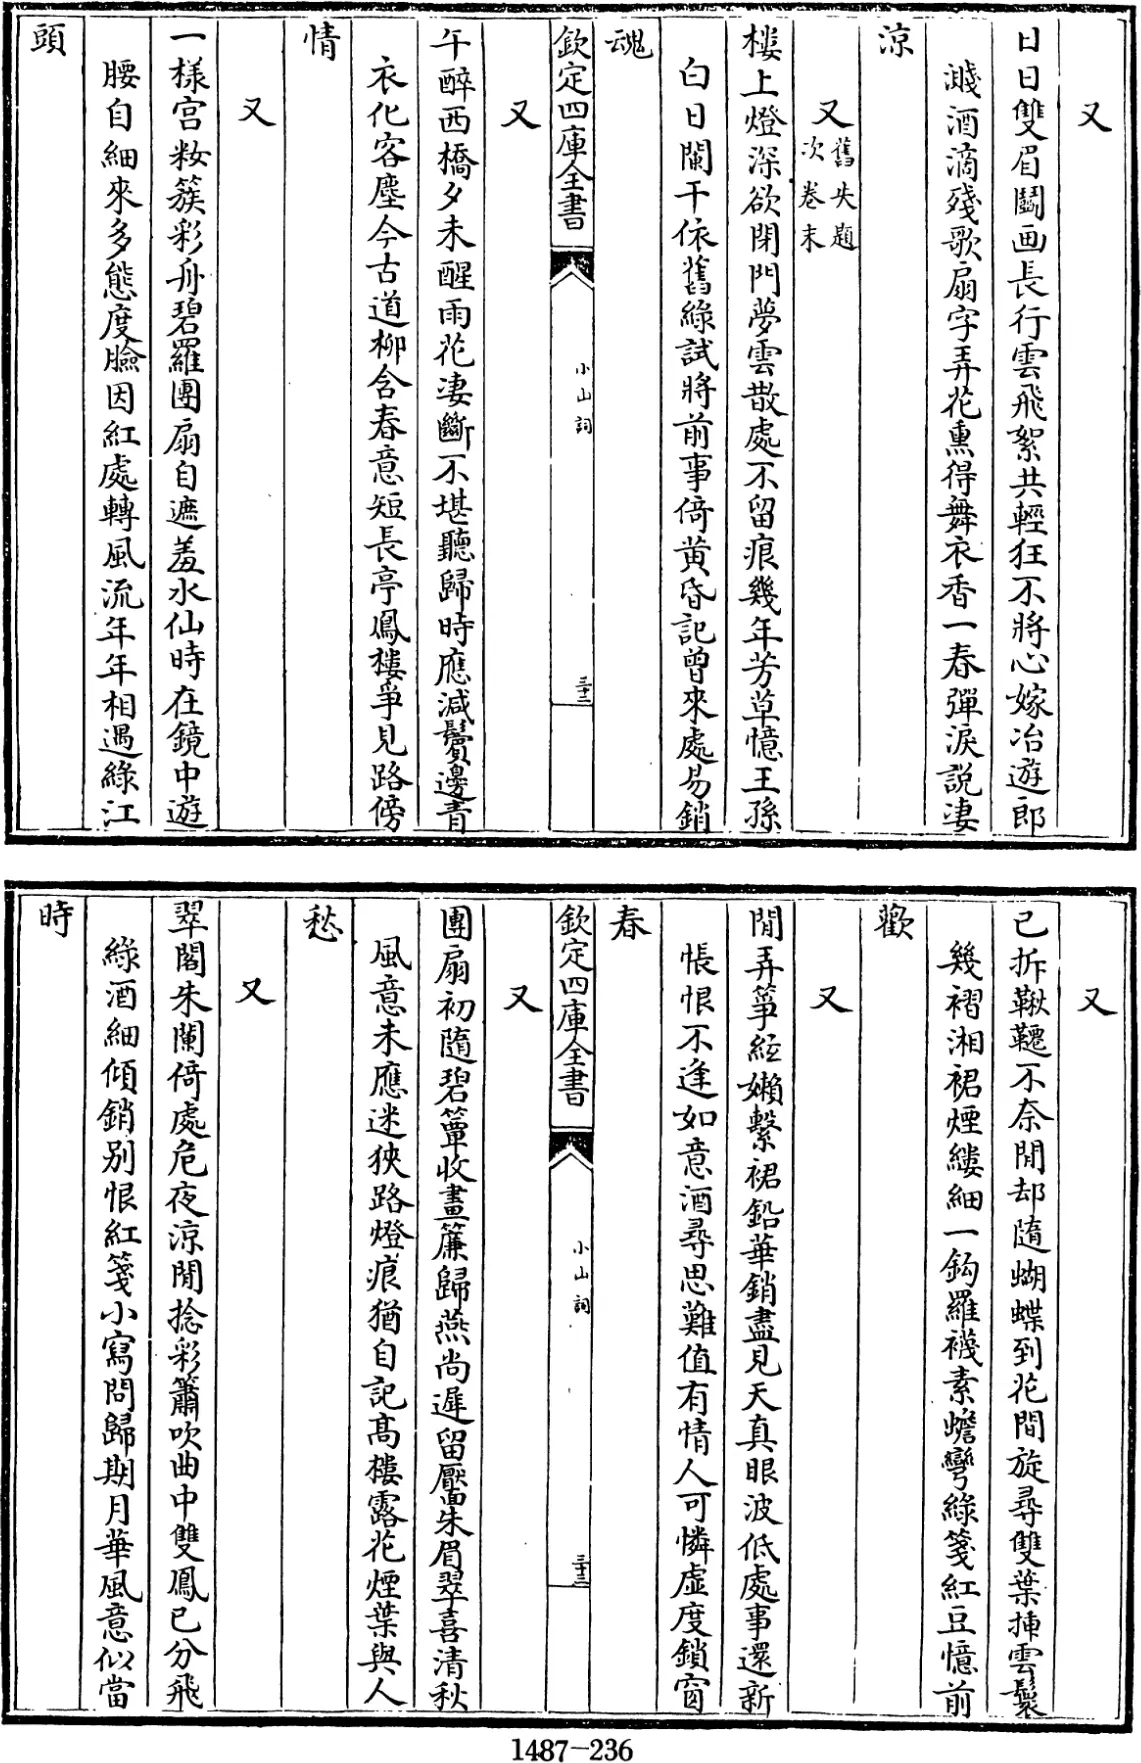 又
日日雙眉鬭画長行雲飛絮共輕狂不將心嫁冶遊郎
濺酒滴殘歌扇字弄花熏得舞衣香一春彈淚說凄
涼
又舊失題
次卷末
樓上燈深欲閉門夢雲散處不留痕幾年芳草憶王孫
白日闌干依舊綠試將前事倚黄昏記曾來處易銷
魂
欽定四庫全書
小山詞
三十二
又
午醉西橋夕未醒雨花凄斷不堪聽歸時應減鬢邊青
衣化客塵今古道柳含春意短長亭鳳樓爭見路傍
情
又
一樣宫粧簇彩舟碧羅團扇自遮羞水仙時在鏡中遊
腰自細來多態度臉因紅處轉風流年年相遇綠江
頭
又
已拆鞦韆不奈閒却隨蝴蝶到花間旋尋雙葉揷雲鬟
幾褶湘裙煙縷細一鈎羅襪素蟾彎綠箋紅豆憶前
歡
又
閒弄筝絃嬾繫裙鉛華銷盡見天真眼波低處事還新
悵恨不逢如意酒尋思難值有情人可憐虛度鎖窗
春
欽定四庫全書
小山詞
三十三
又
團扇初隨碧簟收畫簾歸燕尚遲留靨朱眉翠喜清秋
風意未應迷狹路燈痕猶自記髙樓露花煙葉與人
愁
又
翠閣朱闌倚處危夜涼閒捻彩簫吹曲中雙鳳已分飛
綠酒細傾銷别恨紅箋小寫問歸期月華風意似當
時
1487-236